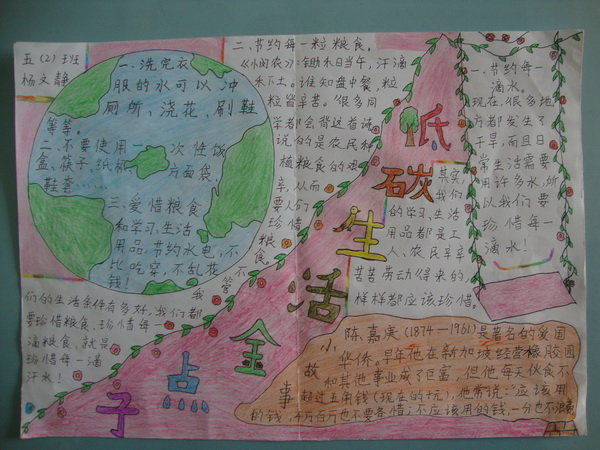 五（2）班
杨文静
一、洗完衣
服的水可以冲
厕所、浇花、刷鞋
等等。
二、不要使用一次性饭
盒、筷子、纸杯、方面袋、
鞋套……
三、爱惜粮食
和学习、生活
用品，节约水电，不
比吃穿，不乱花
钱！
二、节约每一粒粮食。
《悯农》：锄禾日当午，汗滴
禾下土。谁知盘中餐，粒
粒皆辛苦。很多同
学都会背这首诗，
说的是农民种
植粮食的艰
辛，从而
要人们
珍惜
粮
食。
不
管
我
们的生活条件有多好，我们都
要珍惜粮食，珍惜每一
滴粮食，就是
珍惜每一滴
汗水！
低
碳
生
活
金
点
子
一、节约每一
滴水。
现在，很多地
方都发生了
干旱，而且日
常生活需要
用许多水，所
以我们要
珍惜每一
滴水！
其实，
我们
的学习、生活
用品都是工
人、农民辛辛
苦苦劳动得来的，
样样都应该珍惜。
小
故
事
陈嘉庚（1874—1961）是著名的爱国
华侨。早年他在新加坡经营橡胶园
和其他事业成了巨富，但他每天伙食不
超过五角钱（现在的　），他常说：“应该用
的钱，千万百万也不要吝惜；不应该用的钱，一分也不浪费